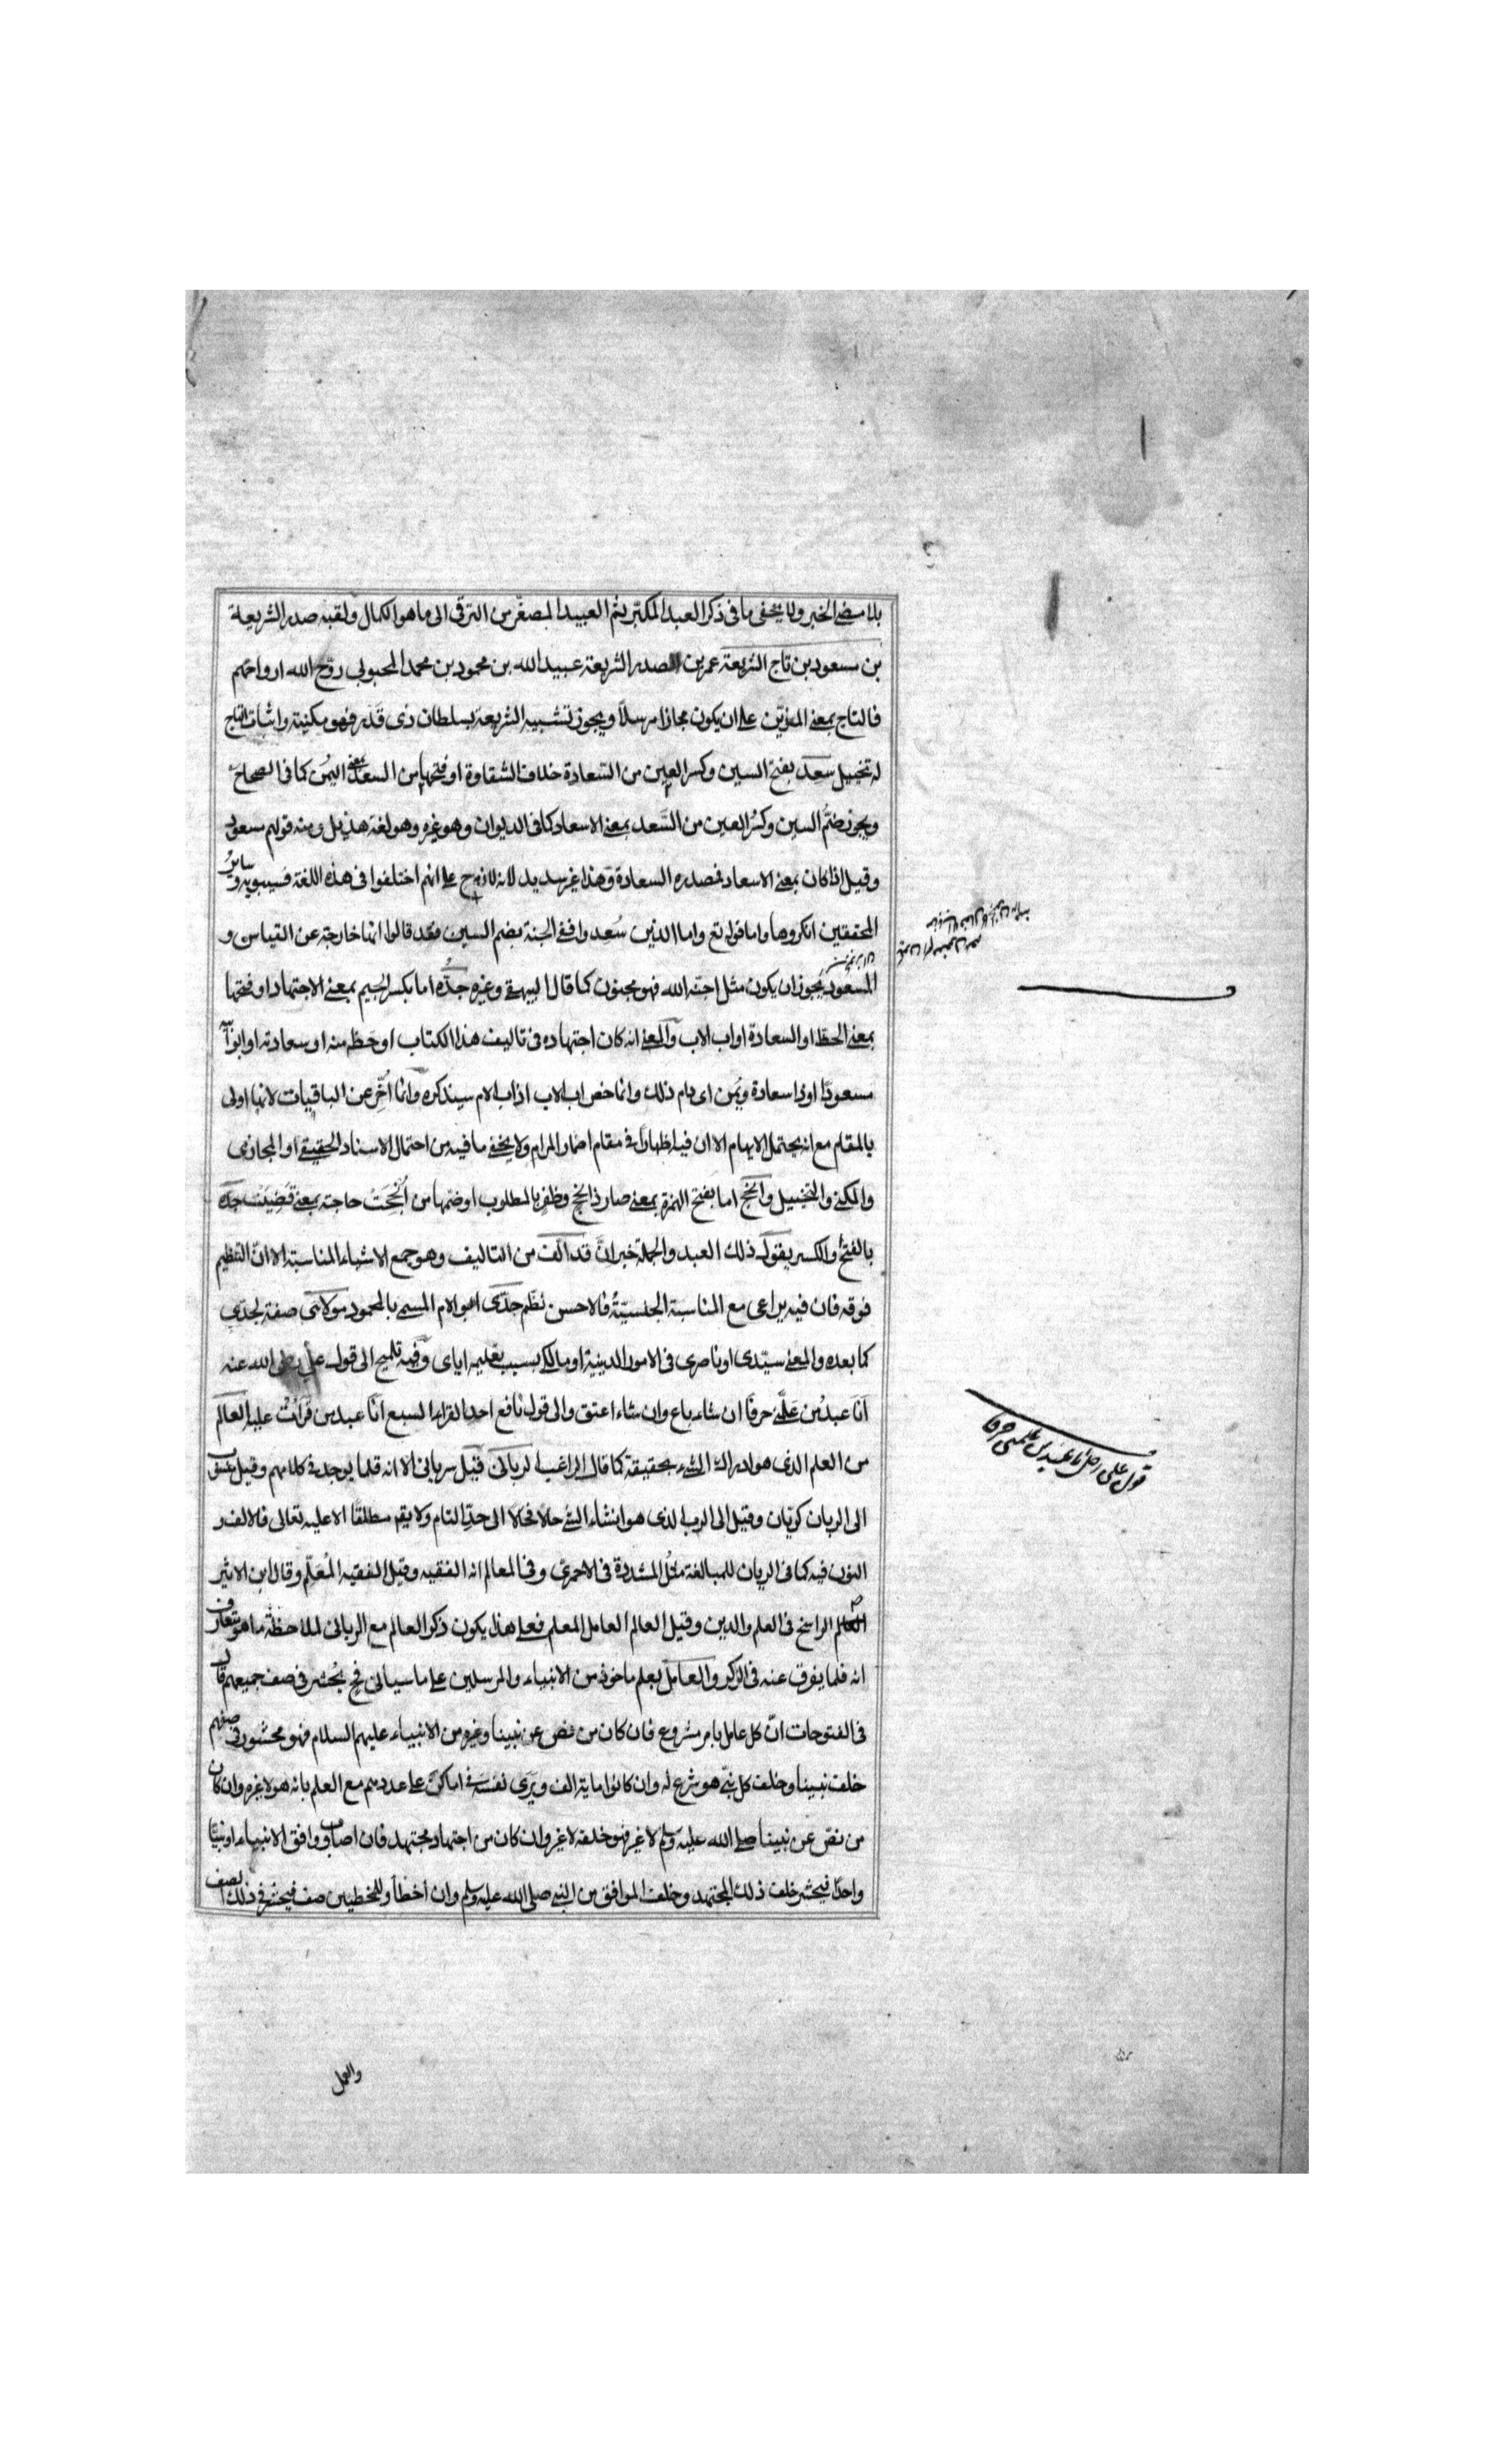 بلا مضى الخبر ولا يخفى ما فى ذكر العبد المكبّر ثم العبيد المصغّر من الترقى الى ما هو الكمال ولقبه صدر الشريعة
بن مسعود بن تاج الشريعة عمر بن صدر الشريعة عبيد الله بن محمود بن محمد المحبوبى روّح الله ارواحهم
فالتاج بمعنى المزيّن على ان يكون مجازا مرسلاً ويجوز تشبيه الشريعة بسلطان ذى قدر فهو مكنية واثبات التاج
له تخييل سعِد بفتح السين وكسر العين من السّعادة خلاف الشقاوة او فتحها من السعد بمعنى اليمن كما فى الصحاح
ويجوز ضمّ السين وكسر العين من السَّعد بمعنى الاسعاد كما فى الديوان وهو غيره وهو لغة هذيل ومنه قولهم مسعود
وقيل اذا كان بمعنى الاسعاد فمصدره السعادة وهذا غير سديد لانه لازم على انهم اختلفوا فى هذه اللغة فسيبويه وسائر
المحققين انكروها واما قوله تع واما الذين سُعِدوا ففى الجنة بضم السين فقد قالوا انها خارجة عن القياس و
المسعُود يجوز ان يكون مثل اجنه الله فهو مجنون كما قال البيهقى وغيره جدُّه اما بكسر الجيم بمعنى الاجتهاد او فتحها
بمعنى الحظ او السعادة او اب الاب والمعنى انه كان اجتهاده فى تاليف هذا الكتاب او حَظّه منه او سعادته او ابو ابيه
مسعودًا او ذا سعادة ويُمن اى دام ذلك وانما خص اب الاب اذ اب الام سيذكره وانما اُخِّر عن الباقيات لانها اولى
بالمقام مع انه يحتمل الايهام الا ان فيه اظهارًا فى مقام اضمار المرام ولا يخفى ما فيه من احتمال الاسناد الحقيقى او المجازى
والكنى والتخييل وانجح اما بفتح الهمزة بمعنى صار ذا نجح وظفر بالمطلوب او ضمها من اُنْجِحَتْ حاجته بمعنى قُضِيَتْ جدّه
بالفتح والكسر يقول ذلك العبد والجملة خبر انّ قد الّف من التاليف وهو جمع الاشياء المناسبة الا انّ التنظيم
فوقه فان فيه يراعى مع المناسبة الجنسيّةُ فالاحسن نظم جدّى ابو الام المسمى بالمحمود مولائى صفة لجدّى
كما بعده والمعنى سيّدى او ناصرى فى الامور الدينية او مالكى بسبب تعليمه اياى وفيه تلميح الى قول على رضى الله عنه
اَنا عبدُ من عَلَّمنى حرفًا ان شاء باع وان شاء اعتق والى قول نافع احد القراء السبع اَنا عبد من قرأتُ عليه العالم
من العلم الذى هو ادراك الشىء بحقيقته كما قال الراغب الربانى قيل سريانى الا انه قلما يوجد فى كلامهم وقيل نسب
الى الربان كريّان وقيل الى الرب الذى هو انشاء الشى حالا فحالا الى حدّ التام ولا يقم مطلقًا الا عليه تعالى فالالف و
النون فيه كما فى الريان للمبالغة مثل المشددة فى الاحمرى وفى المعالم انه الفقيه وقيل الفقيه المُعَلِّم وقال ابن الاثير
العالم الراسخ فى العلم والدين وقيل العالم العامل المعلم فعلى هذا يكون ذكر العالم مع الربانى لملاحظة ما هو متعارف
انه فلما يفرق عنه فى الذكر والعامل بعلم ماخوذ من الانبياء والمرسلين على ما سياتى فح يُحشر فى صف جميعهم قال
فى الفتوحات انّ كل عامل بامر مشروع فان كان من نص عن نبينا وغيره من الانبياء عليهم السلام فهو محشور فى صفهم
خلف نبينا وخلف كل نبىّ هو شرع له وان كانوا ماية الف ويرى نفسَه فى اماكن على عددهم مع العلم بانه هو لا غيره وان كان
من نصّ عن نبينا صلى الله عليه وسلم لا غير فهو خلفه لا غير وان كان من اجتهاد مجتهد فان اصاب ووافق الانبياء او نبيًّا
واحدًا فيحشر خلف ذلك المجتهد وخلف الموافق من النبى صلى الله عليه وسلم وان أخطأ وللمخطيين صف فيحشر فى ذلك الصف
والعمل
قول على رض انا عبد من علمنى حرفا